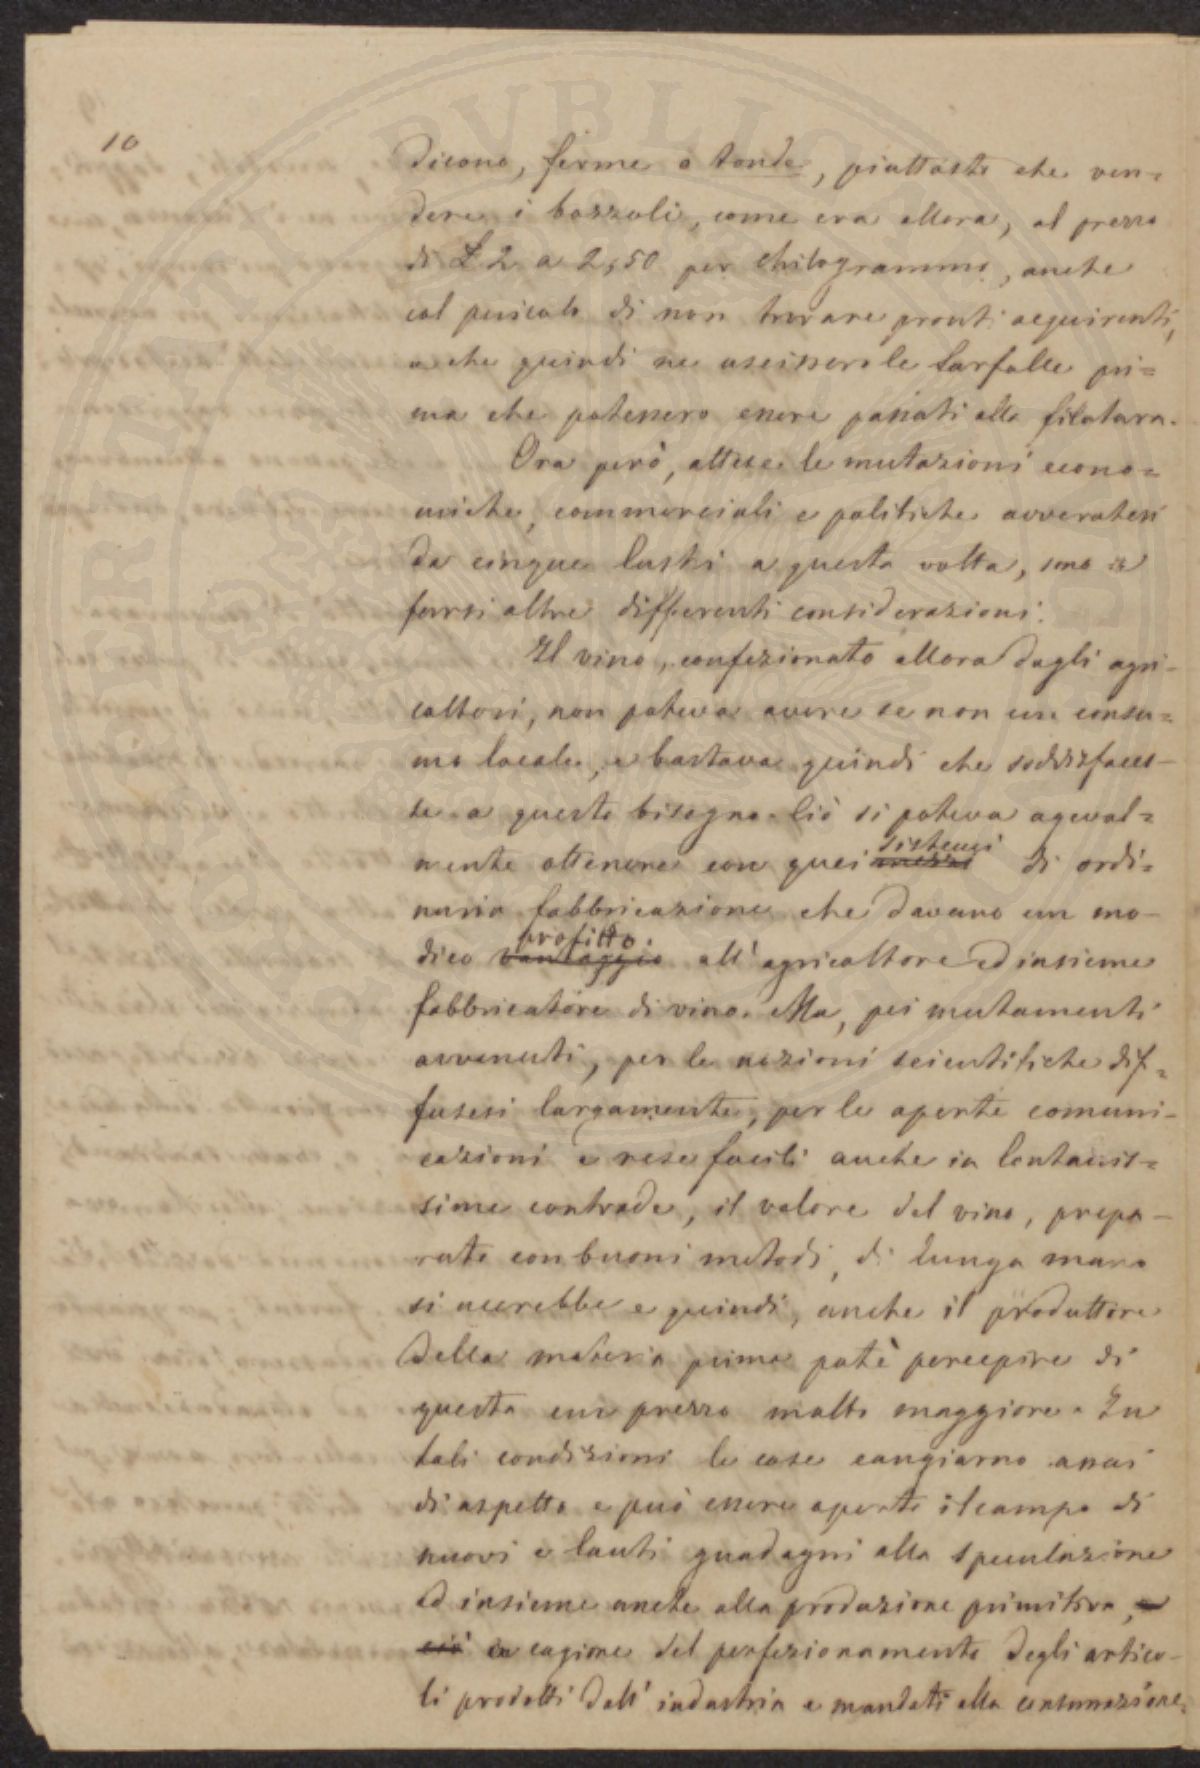 10
dicono, ferme o tonde, piuttosto che ven=
dere i bozzoli, come era allora, al prezzo
di £ 2 a 2,50 per chilogrammo, anche
col pericolo di non trovare pronti acquirenti,
e che quindi ne uscissero le farfalle pri=
ma che potessero essere passati alla filatura.
Ora però, attese le mutazioni econo=
miche, commerciali e politiche avveratesi
da cinque lustri a questa volta, sono a
farsi altre differenti considerazioni.
Il vino, confezionato allora dagli agri-
coltori, non poteva avere se non un consu=
mo locale, e bastava quindi che soddisfaces-
se a questo bisogno. Ciò si poteva agevol=
mente ottenere con quei mezzi sistemi di ordi=
naria fabbricazione che davano un mo-
dico vantaggio profitto all'agricoltore ed insieme
fabbricatore di vino. Ma, pei mutamenti
avvenuti, per le nozioni scientifiche dif=
fusesi largamente, per le aperte comuni-
cazioni e rese facili anche in lontanis=
sime contrade, il valore del vino, prepa-
rato con buoni metodi, di lunga mano
si accrebbe e quindi, anche il produttore
della materia prima potè percepire di
questa un prezzo molto maggiore. In
tali condizioni le cose cangiarno assai
di aspetto e può essere aperto il campo di
nuovi e lauti guadagni alla speculazione
ed insieme anche alla produzione primitiva, e
ciò in cagione del perfezionamento degli artico-
li prodotti dall'industria e mandati alla consumazione.
PVBLIC